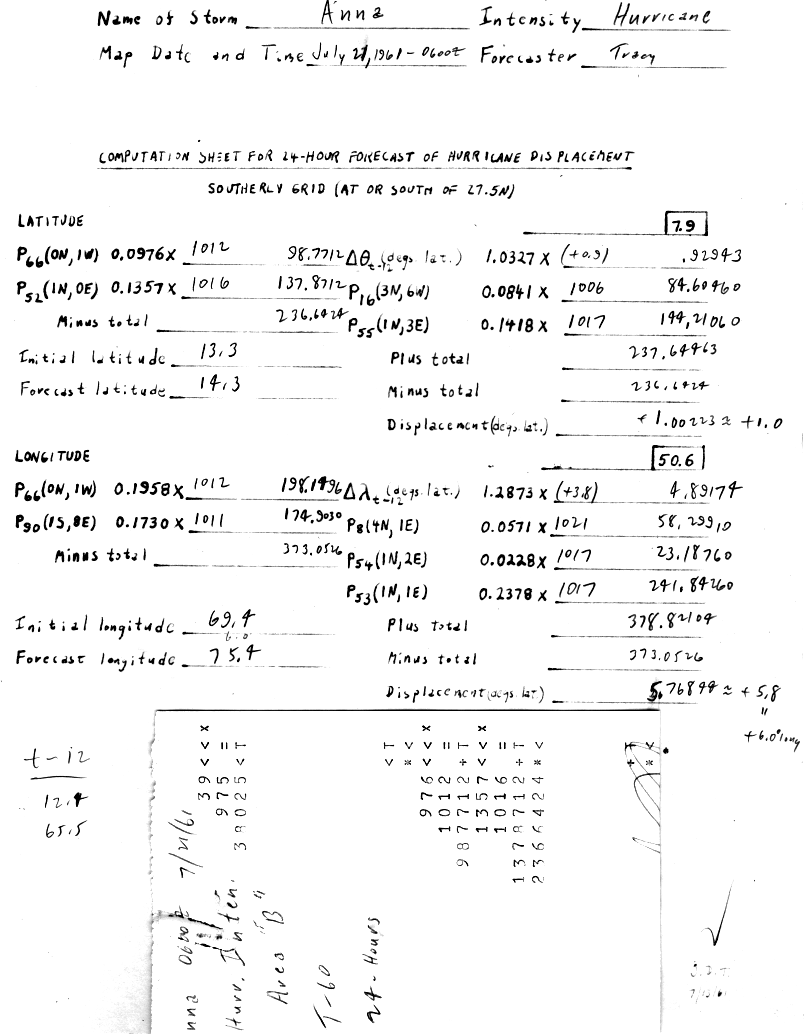 Name of Storm Anna Intensity Hurricane
Map Date and Time July 21, 1961 - 0600Z Forecaster Tracy
COMPUTATION SHEET FOR 24-HOUR FORECAST OF HURRICANE DISPLACEMENT
SOUTHERLY GRID (AT OR SOUTH OF 27.5N)
LATITUDE 7.9
P66(0N,1W) 0.0976X 1012 98.7712 Δθt-12 (degs. lat.) 1.0327 X (+0.9) .92943
P52(1N,0E) 0.1357X 1016 137.8712 P16(3N,6W) 0.0841 X 1006 84.60460
Minus total 236.6424 P55(1N,3E) 0.1418 X 1017 144.21060
Initial latitude 13.3 Plus total 237.64463
Forecast latitude 14.3 Minus total 236.6424
Displacement (degs. lat.) +1.00223 ≈ +1.0
LONGITUDE 50.6
P66(0N,1W) 0.1958X 1012 198.1496 Δλt-12 (degs. lat.) 1.2873 X (+3.8) 4.89174
P90(1S,8E) 0.1730X 1011 174.9030 P8(4N,1E) 0.0571 X 1021 58.29910
Minus total 373.0526 P54(1N,2E) 0.0228X 1017 23.18760
P53(1N,1E) 0.2378 X 1017 241.84260
Initial longitude 69.4 Plus total 378.82104
6.0
Forecast longitude 75.4 Minus total 373.0526
Displacement (degs. lat.) 5.76844 ≈ +5.8
"
+6.0° long
t-12
12.4
65.5
39 < < x
975 =
38025 < T
< T
* <
976 < < x
1012 =
987712 + T
1357 < < x
1016 =
1378712 + T
2366424 * <
+ T
* <
nna 0600Z 7/21/61
Hurr. Inten.
Area "B"
T-60
24-Hours